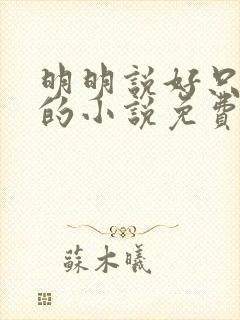 明明說好只
的小說免費
蘇木曦